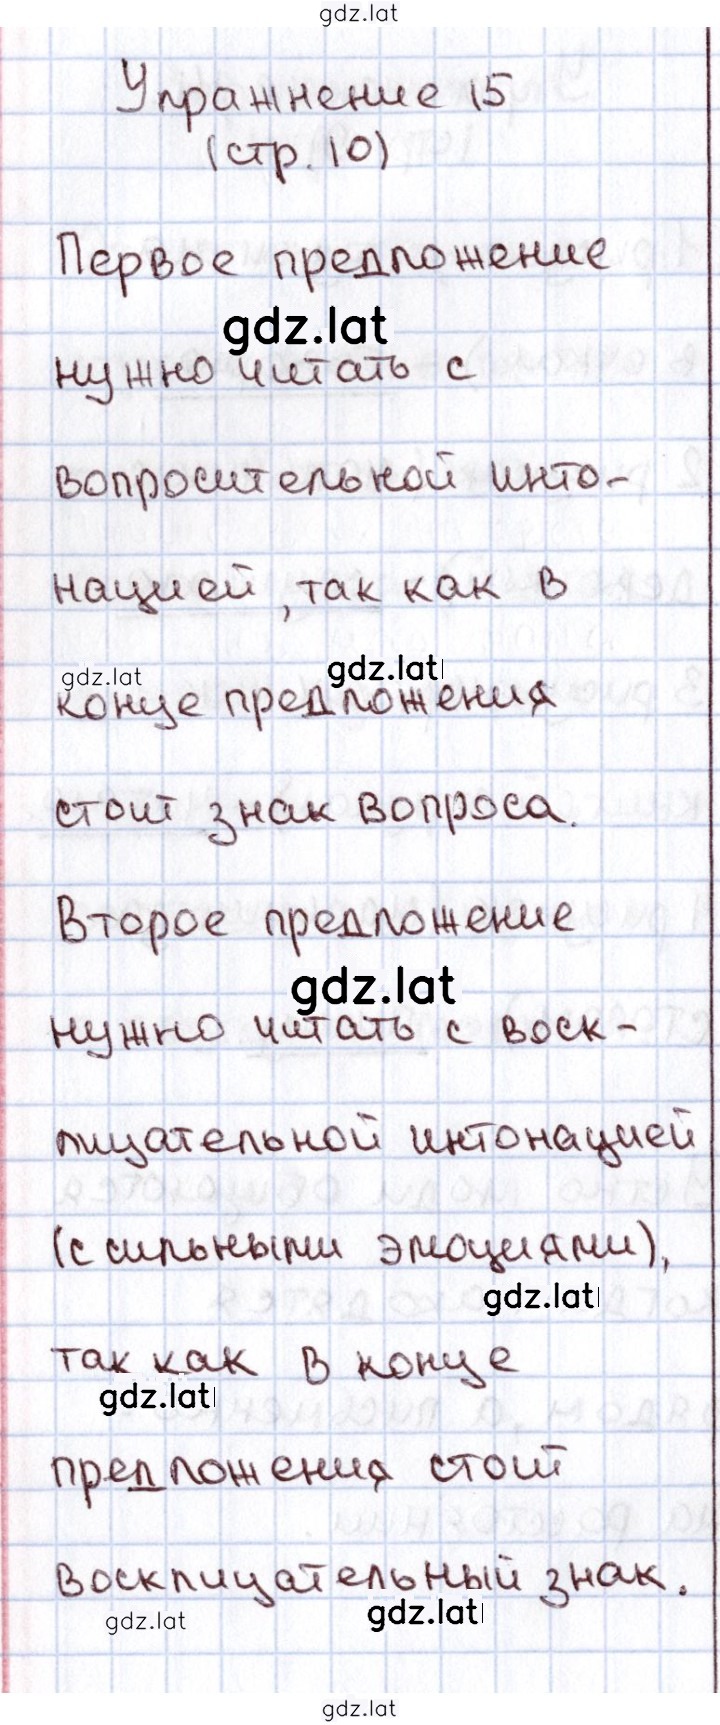 gdz.lat
Упражнение 15
(стр. 10)
Первое предложение
gdz.lat
нужно читать с
вопросительной инто-
нацией, так как в
gdz.lat gdz.lat
конце предложения
стоит знак вопроса.
Второе предложение
gdz.lat
нужно читать с воск-
лицательной интонацией
(с сильными эмоциями),
gdz.lat
так как в конце
gdz.lat
предложения стоит
восклицательный знак.
gdz.lat gdz.lat
gdz.lat